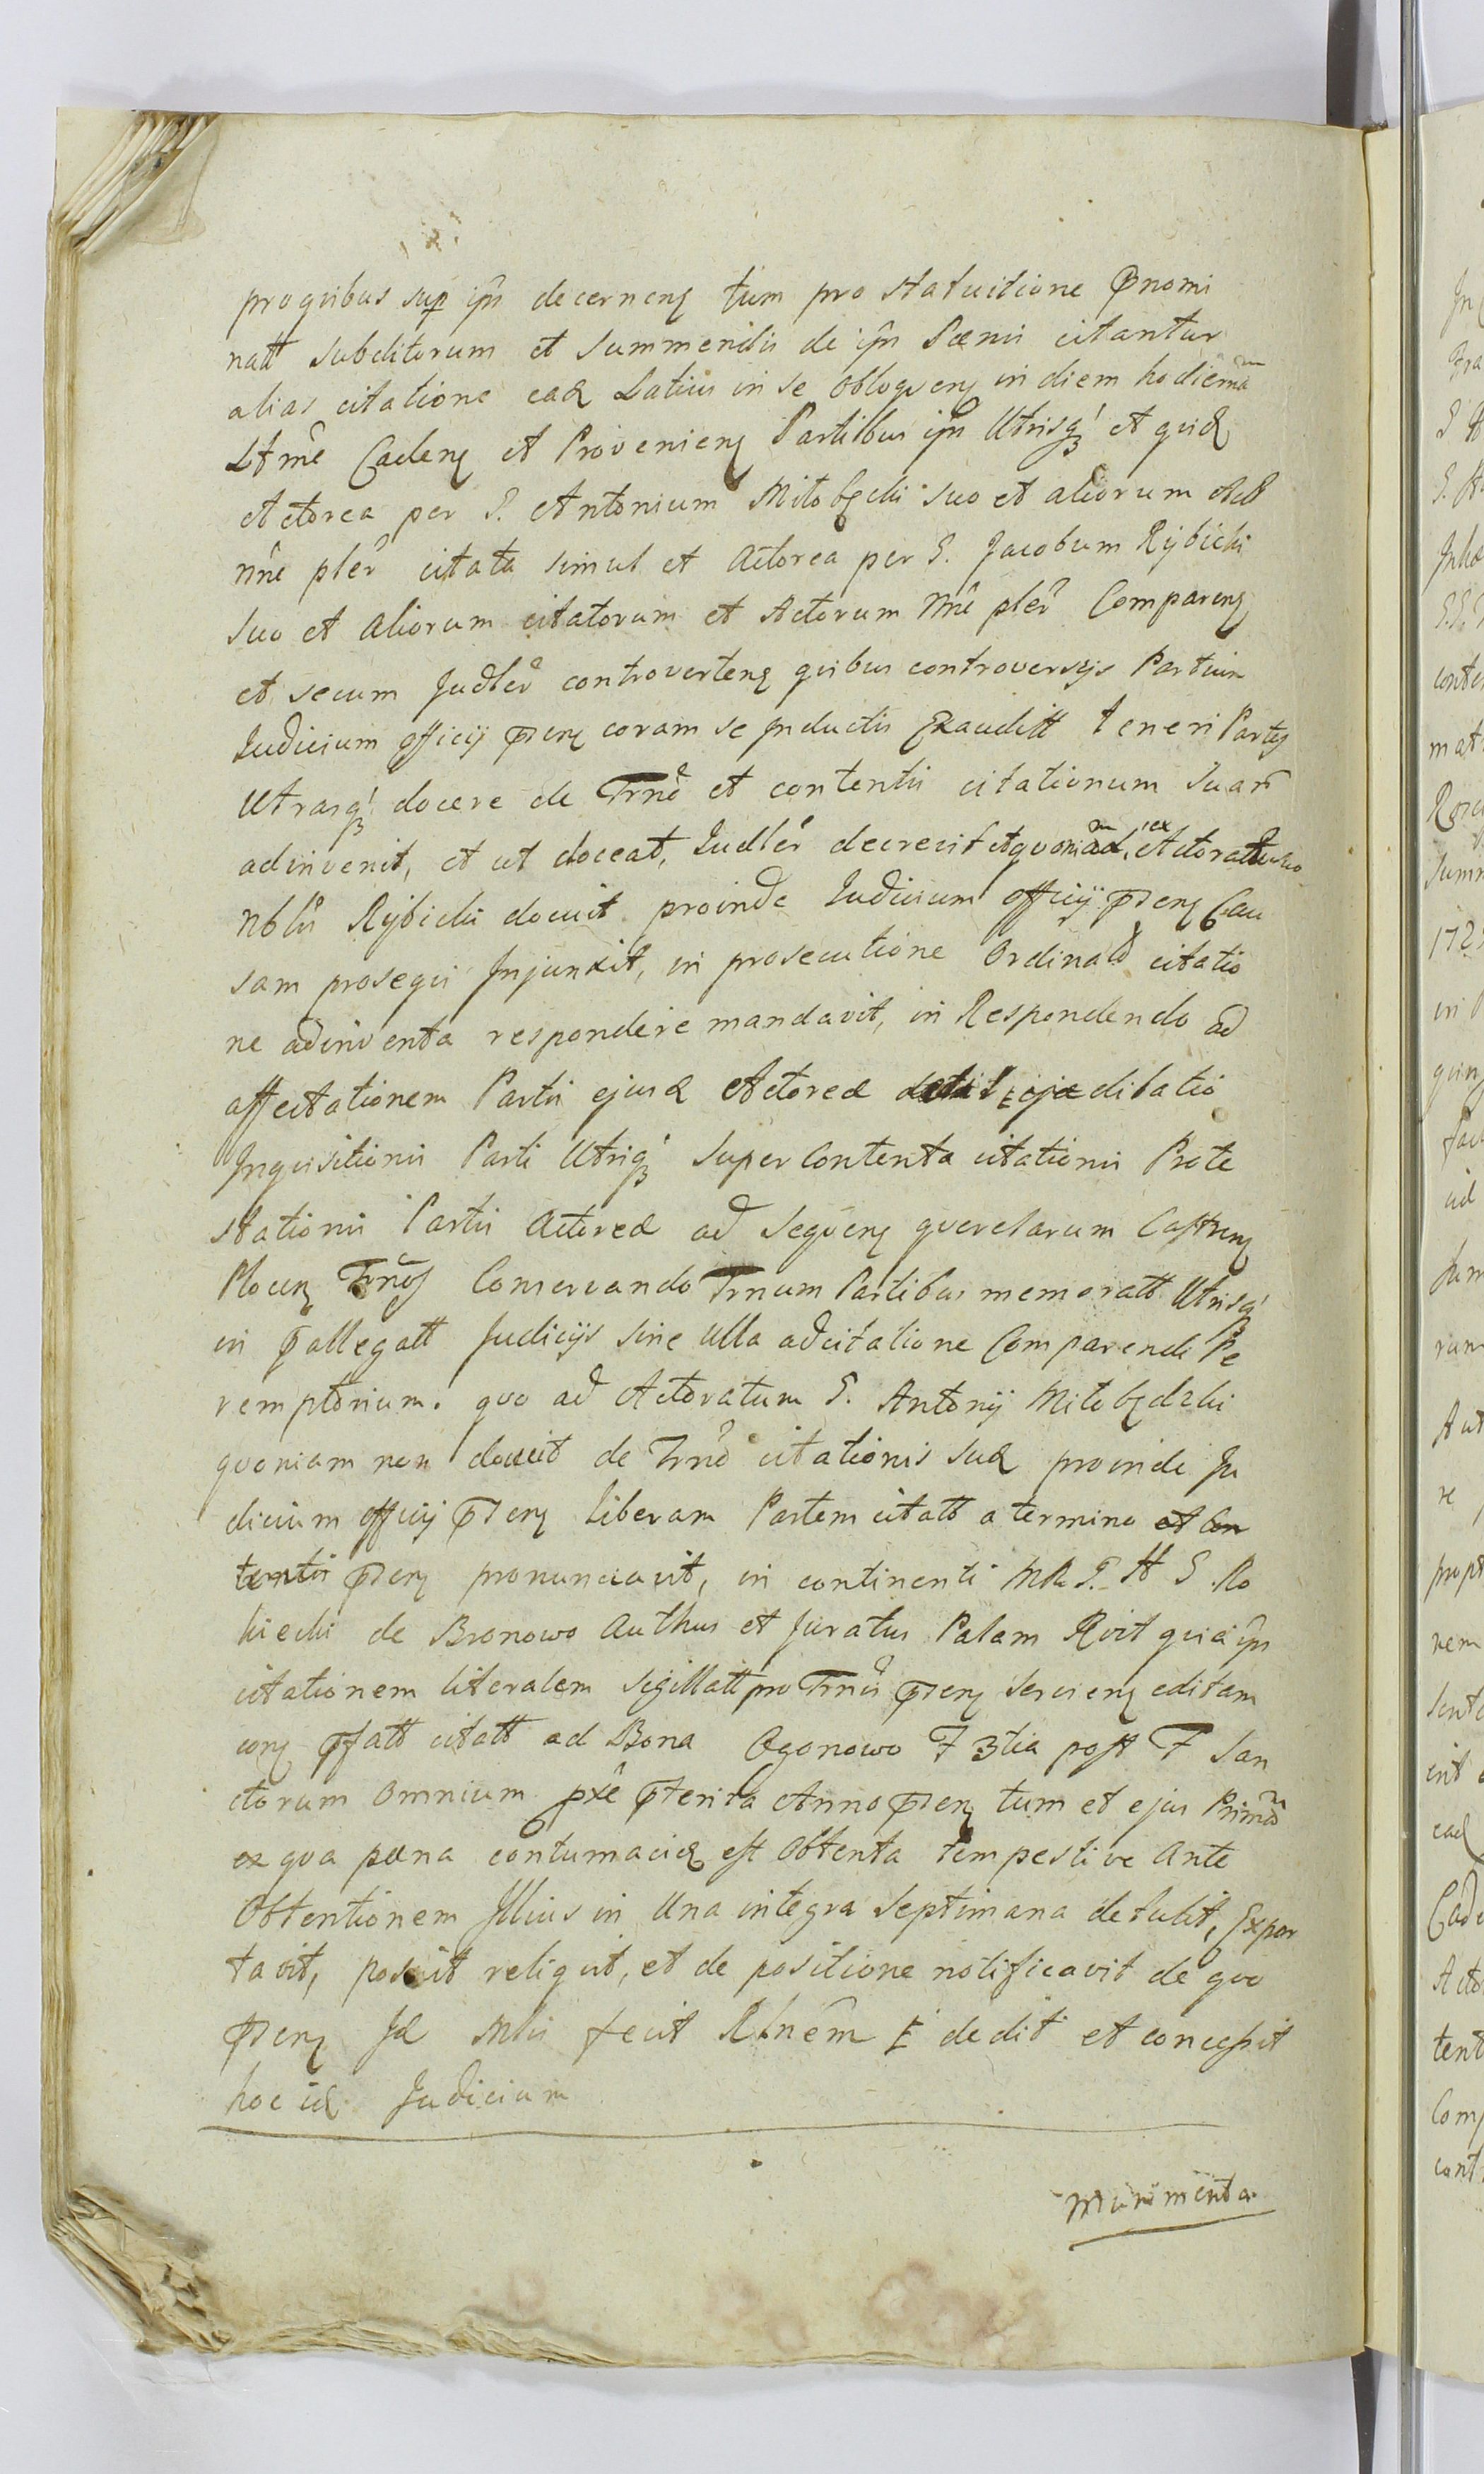 pro quibus sup ipn decernenɜ tum pro statuitione Pnomi
natt subditorum et summendis de ipn Pœnis citantur
alias citatione eadɜ Latius in se obloquenɜ in diem hodiernam
Ltme Cadenɜ et Provenienɜ Partibus ipn Utrisqɜ et quidɜ
Actorea per G. Antonium Mitobɜcki suo et aliorum Act
nne pler citata simul et Actorea per G. Jacobum Rybicki
suo et aliorum citatorum et Actorum nne pler Comparenɜ
et secum Judler controvertenɜ quibus controversijs Partium
Judicium officij Psenɜ coram se Inductis Exauditt teneri Partes
Utrasqɜ docere de Trno et contentis citationum suar
adinvenit, et ut doceat, Judler decrevit et quoniam ex Actoratu suo
Nblis Rybicki docuit proinde Judicium officij Psenɜ Cau
sam prosequi Injunxit, in prosecutione Ordinata citatio
ne adinventa respondere mandavit, in Respondendo ad
affectationem Partis ejusdɜ Actoreæ ditatio
Inquisitionis Parti Utriqɜ super Contenta citationis Prote
stationis Partis Actoreæ ad sequenɜ querelarum Castrenɜ
Plocenɜ Trnos Conservando Trnum Partibus memoratt Utrisqɜ
in Pallegatt Judicijs sine Ulla adcitatione Comparendi Pe
remptorium. quo ad Actoratum G. Antonij Mitobɜdzki
quoniam non docuit de Trno citationis suæ proinde Ju
dicium officij Psenɜ liberam Partem citatt a termino et con
tentis Psenɜ pronunciavit, in continenti MR. G. H G Ro
kicki de Bronowo Authus et Juratus Palam Rvit quia ipn
citationem literalem sigillatt pro Trnis Psenɜ servienɜ editam
conɜ Pfatt citatt ad Bona Ogonowo F 3tia post F San
ctorum Omnium pxe Pterita Anno Psenɜ tum et ejus Primam
ex qua pœna contumaciæ est obtenta tempestive Ante
Obtentionem Illius in Una integra septimana detulit, Expor
tavit, posuit reliquit, et de positione notificavit de quo
Psenɜ Id Mtri fecit Rlnem E dedit et concessit
hoc idɜ Judicium
Munimenta